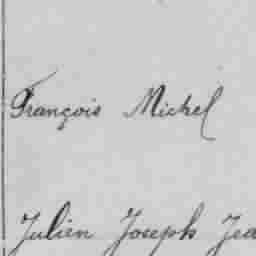 François Michel
Julien Joseph Jea